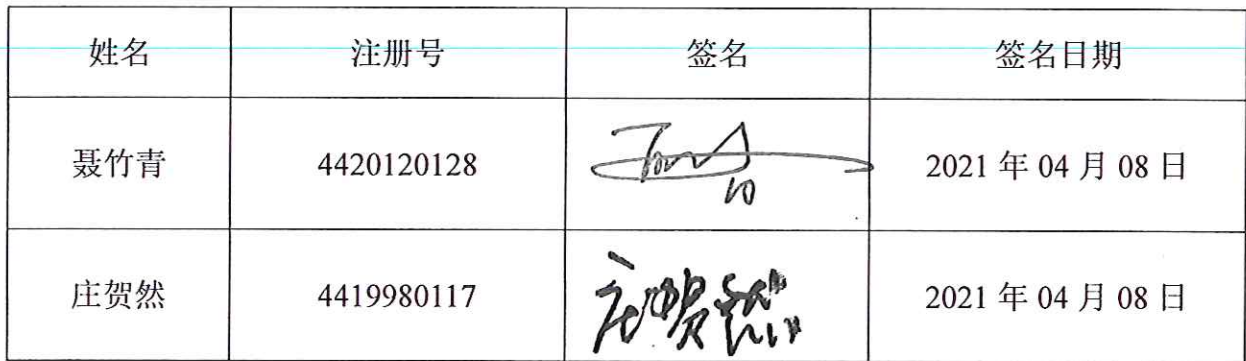 姓名 注册号 签名 签名日期
聂竹青 4420120128 2021 年 04 月 08 日
庄贺然 4419980117 庄贺然 2021 年 04 月 08 日